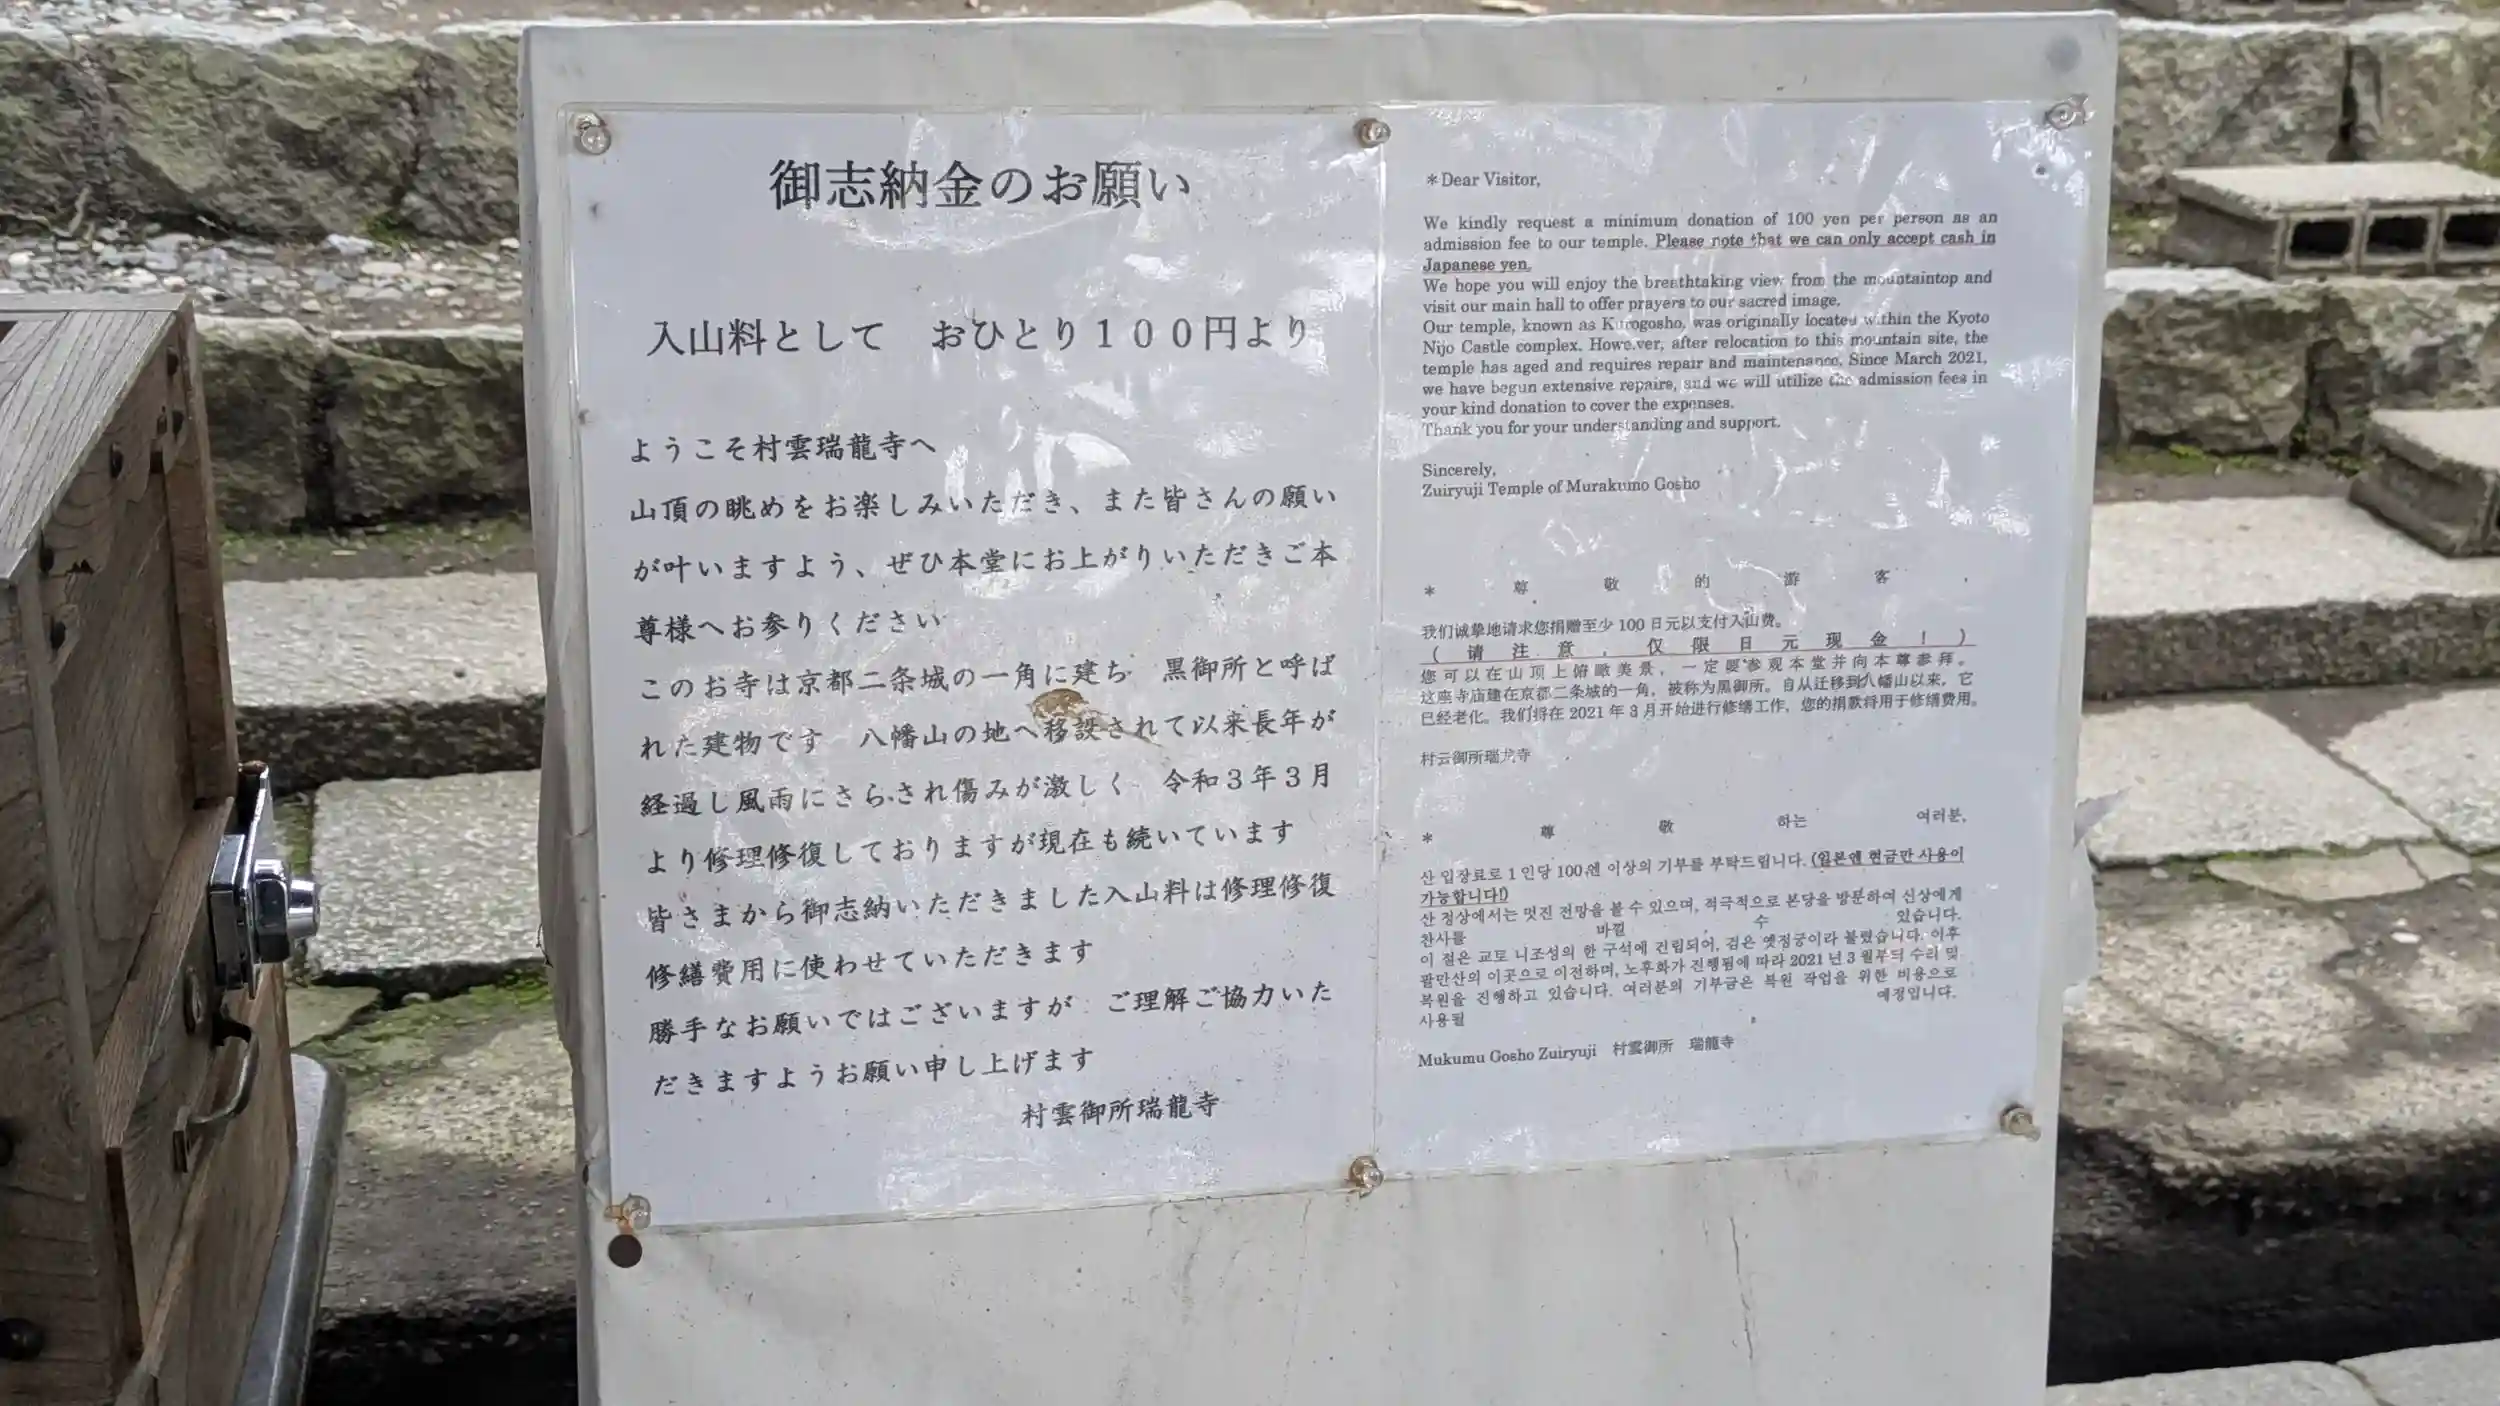 御志納金のお願い
入山料として　おひとり１００円より
ようこそ村雲瑞龍寺へ
山頂の眺めをお楽しみいただき、また皆さんの願い
が叶いますよう、ぜひ本堂にお上がりいただきご本
尊様へお参りください
このお寺は京都二条城の一角に建ち　黒御所と呼ば
れた建物です　八幡山の地へ移設されて以来長年が
経過し風雨にさらされ傷みが激しく　令和３年３月
より修理修復しておりますが現在も続いています
皆さまから御志納いただきました入山料は修理修復
修繕費用に使わせていただきます
勝手なお願いではございますが　ご理解ご協力いた
だきますようお願い申し上げます
村雲御所瑞龍寺
＊Dear Visitor,
We kindly request a minimum donation of 100 yen per person as an
admission fee to our temple. Please note that we can only accept cash in
Japanese yen.
We hope you will enjoy the breathtaking view from the mountaintop and
visit our main hall to offer prayers to our sacred image.
Our temple, known as Kurogosho, was originally located within the Kyoto
Nijo Castle complex. However, after relocation to this mountain site, the
temple has aged and requires repair and maintenance. Since March 2021,
we have begun extensive repairs, and we will utilize the admission fees in
your kind donation to cover the expenses.
Thank you for your understanding and support.
Sincerely,
Zuiryuji Temple of Murakumo Gosho
＊ 尊 敬 的 游 客 ，
我们诚挚地请求您捐赠至少 100 日元以支付入山费。
（ 请 注 意 ， 仅 限 日 元 现 金 ！ ）
您可以在山顶上俯瞰美景，一定要参观本堂并向本尊参拜。
这座寺庙建在京都二条城的一角，被称为黑御所。自从迁移到八幡山以来，它
已经老化。我们将在 2021 年 3 月开始进行修缮工作，您的捐款将用于修缮费用。
村云御所瑞龙寺
＊ 尊 敬 하는 여러분,
산 입장료로 1 인당 100 엔 이상의 기부를 부탁드립니다. (일본엔 현금만 사용이
가능합니다!)
산 정상에서는 멋진 전망을 볼 수 있으며, 적극적으로 본당을 방문하여 신상에게
찬사를 바칠 수 있습니다.
이 절은 교토 니조성의 한 구석에 건립되어, 검은 옛정궁이라 불렸습니다. 이후
팔만산의 이곳으로 이전하며, 노후화가 진행됨에 따라 2021 년 3 월부터 수리 및
복원을 진행하고 있습니다. 여러분의 기부금은 복원 작업을 위한 비용으로
사용될 예정입니다.
Mukumu Gosho Zuiryuji　村雲御所　瑞龍寺